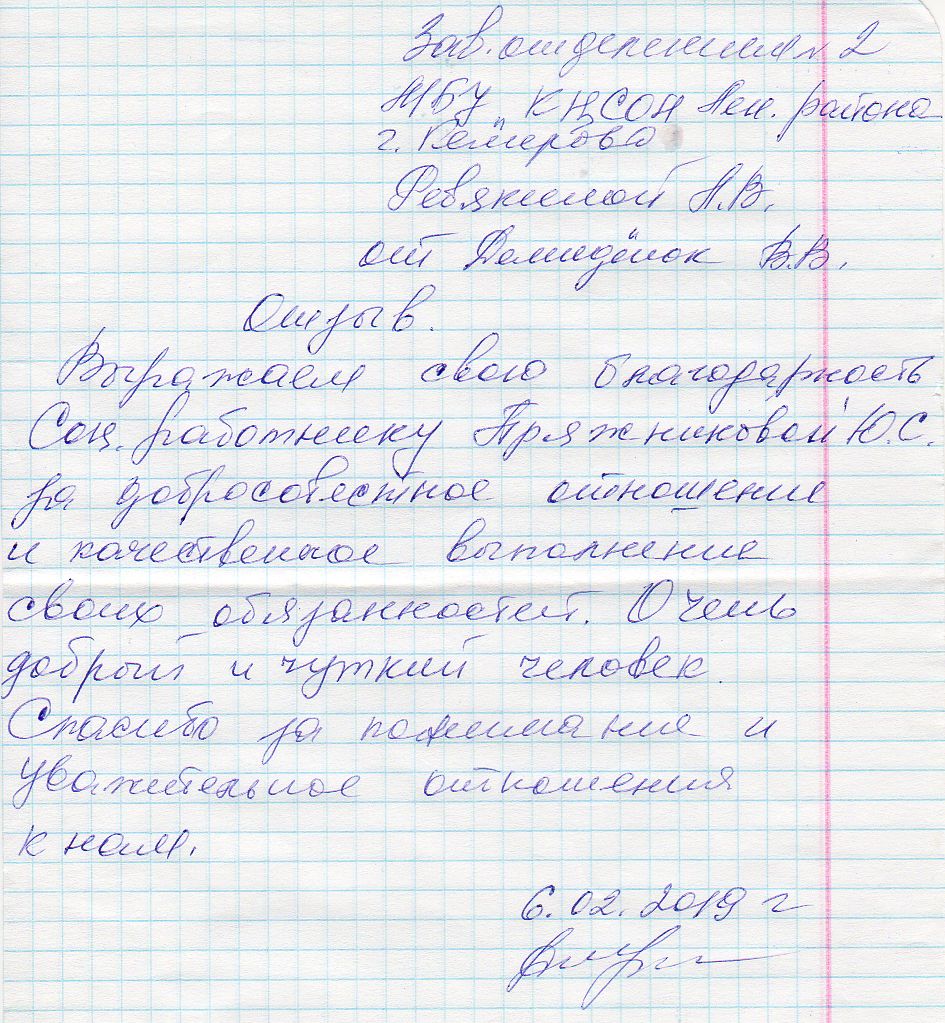 Зав. отделением 2
МБУ КЦСОН Лен. района
г. Кемерово
Ревякиной Н.В.
от Демидёнок В.В.
Отзыв.
Выражаем свою благодарность
Соц. работнику Пряжниковой Ю.С.
за добросовестное отношение
и качественное выполнение
своих обязанностей. Очень
добрый и чуткий человек.
Спасибо за понимание и
уважительное отношения
к нам.
6.02.2019 г